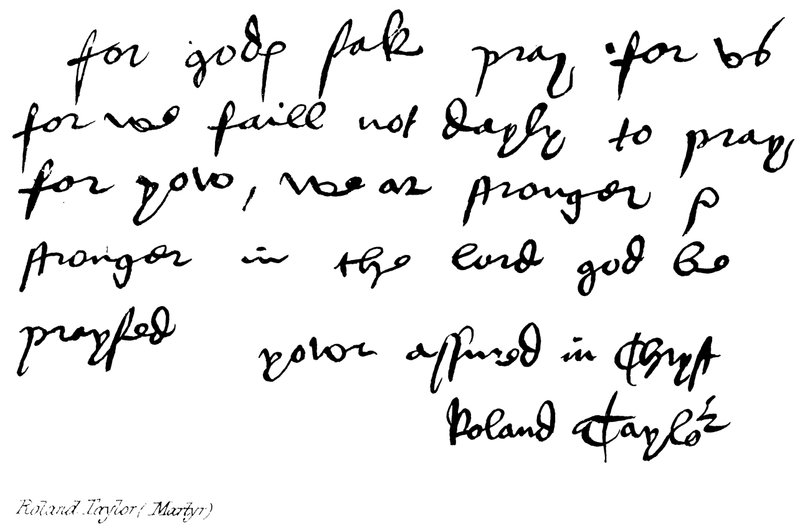 for godꝭ sak pray for vs
for we faill not dayly to pray
for yow, we ar stronger &
stronger in the lord god be
praysed
yowr assured in Chryst
Roland Taylor
Roland Taylor (Martyr)